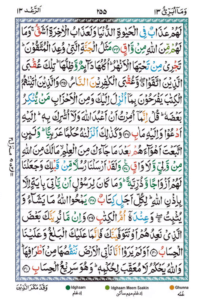 وَمَآ اُبَرِّئُ ١٣
٢٥٥
الرَّعْد ١٣
لَهُمْ عَذَابٌ فِي الْحَيٰوةِ الدُّنْيَا وَلَعَذَابُ الْاٰخِرَةِ اَشَقُّ ۚ وَمَا
لَهُمْ مِّنَ اللّٰهِ مِنْ وَّاقٍ مَثَلُ الْجَنَّةِ الَّتِيْ وُعِدَ الْمُتَّقُوْنَ ؕ
تَجْرِيْ مِنْ تَحْتِهَا الْاَنْهٰرُ ؕ اُكُلُهَا دَآئِمٌ وَّظِلُّهَا ؕ تِلْكَ عُقْبَى
الَّذِيْنَ اتَّقَوْا ۖ وَّعُقْبَى الْكٰفِرِيْنَ النَّارُ وَالَّذِيْنَ اٰتَيْنٰهُمُ
الْكِتٰبَ يَفْرَحُوْنَ بِمَآ اُنْزِلَ اِلَيْكَ وَمِنَ الْاَحْزَابِ مَنْ يُّنْكِرُ
بَعْضَهٗ ؕ قُلْ اِنَّمَآ اُمِرْتُ اَنْ اَعْبُدَ اللّٰهَ وَلَآ اُشْرِكَ بِهٖ ؕ اِلَيْهِ
اَدْعُوْا وَاِلَيْهِ مَاٰبِ وَكَذٰلِكَ اَنْزَلْنٰهُ حُكْمًا عَرَبِيًّا ؕ وَلَئِنِ
اتَّبَعْتَ اَهْوَآءَهُمْ بَعْدَ مَا جَآءَكَ مِنَ الْعِلْمِ ۙ مَا لَكَ مِنَ اللّٰهِ
مِنْ وَّلِيٍّ وَّلَا وَاقٍ وَلَقَدْ اَرْسَلْنَا رُسُلًا مِّنْ قَبْلِكَ وَجَعَلْنَا
لَهُمْ اَزْوَاجًا وَّذُرِّيَّةً ؕ وَمَا كَانَ لِرَسُوْلٍ اَنْ يَّاْتِيَ بِاٰيَةٍ اِلَّا
بِاِذْنِ اللّٰهِ ؕ لِكُلِّ اَجَلٍ كِتَابٌ يَمْحُوا اللّٰهُ مَا يَشَآءُ
وَيُثْبِتُ ۖ وَعِنْدَهٗٓ اُمُّ الْكِتٰبِ وَاِنْ مَّا نُرِيَنَّكَ بَعْضَ
الَّذِيْ نَعِدُهُمْ اَوْ نَتَوَفَّيَنَّكَ فَاِنَّمَا عَلَيْكَ الْبَلٰغُ وَعَلَيْنَا
الْحِسَابُ اَوَلَمْ يَرَوْا اَنَّا نَاْتِي الْاَرْضَ نَنْقُصُهَا مِنْ اَطْرَافِهَا ؕ
وَاللّٰهُ يَحْكُمُ لَا مُعَقِّبَ لِحُكْمِهٖ ؕ وَهُوَ سَرِيْعُ الْحِسَابِ
Idghaam
Idghaam Meem Saakin
Ghunna